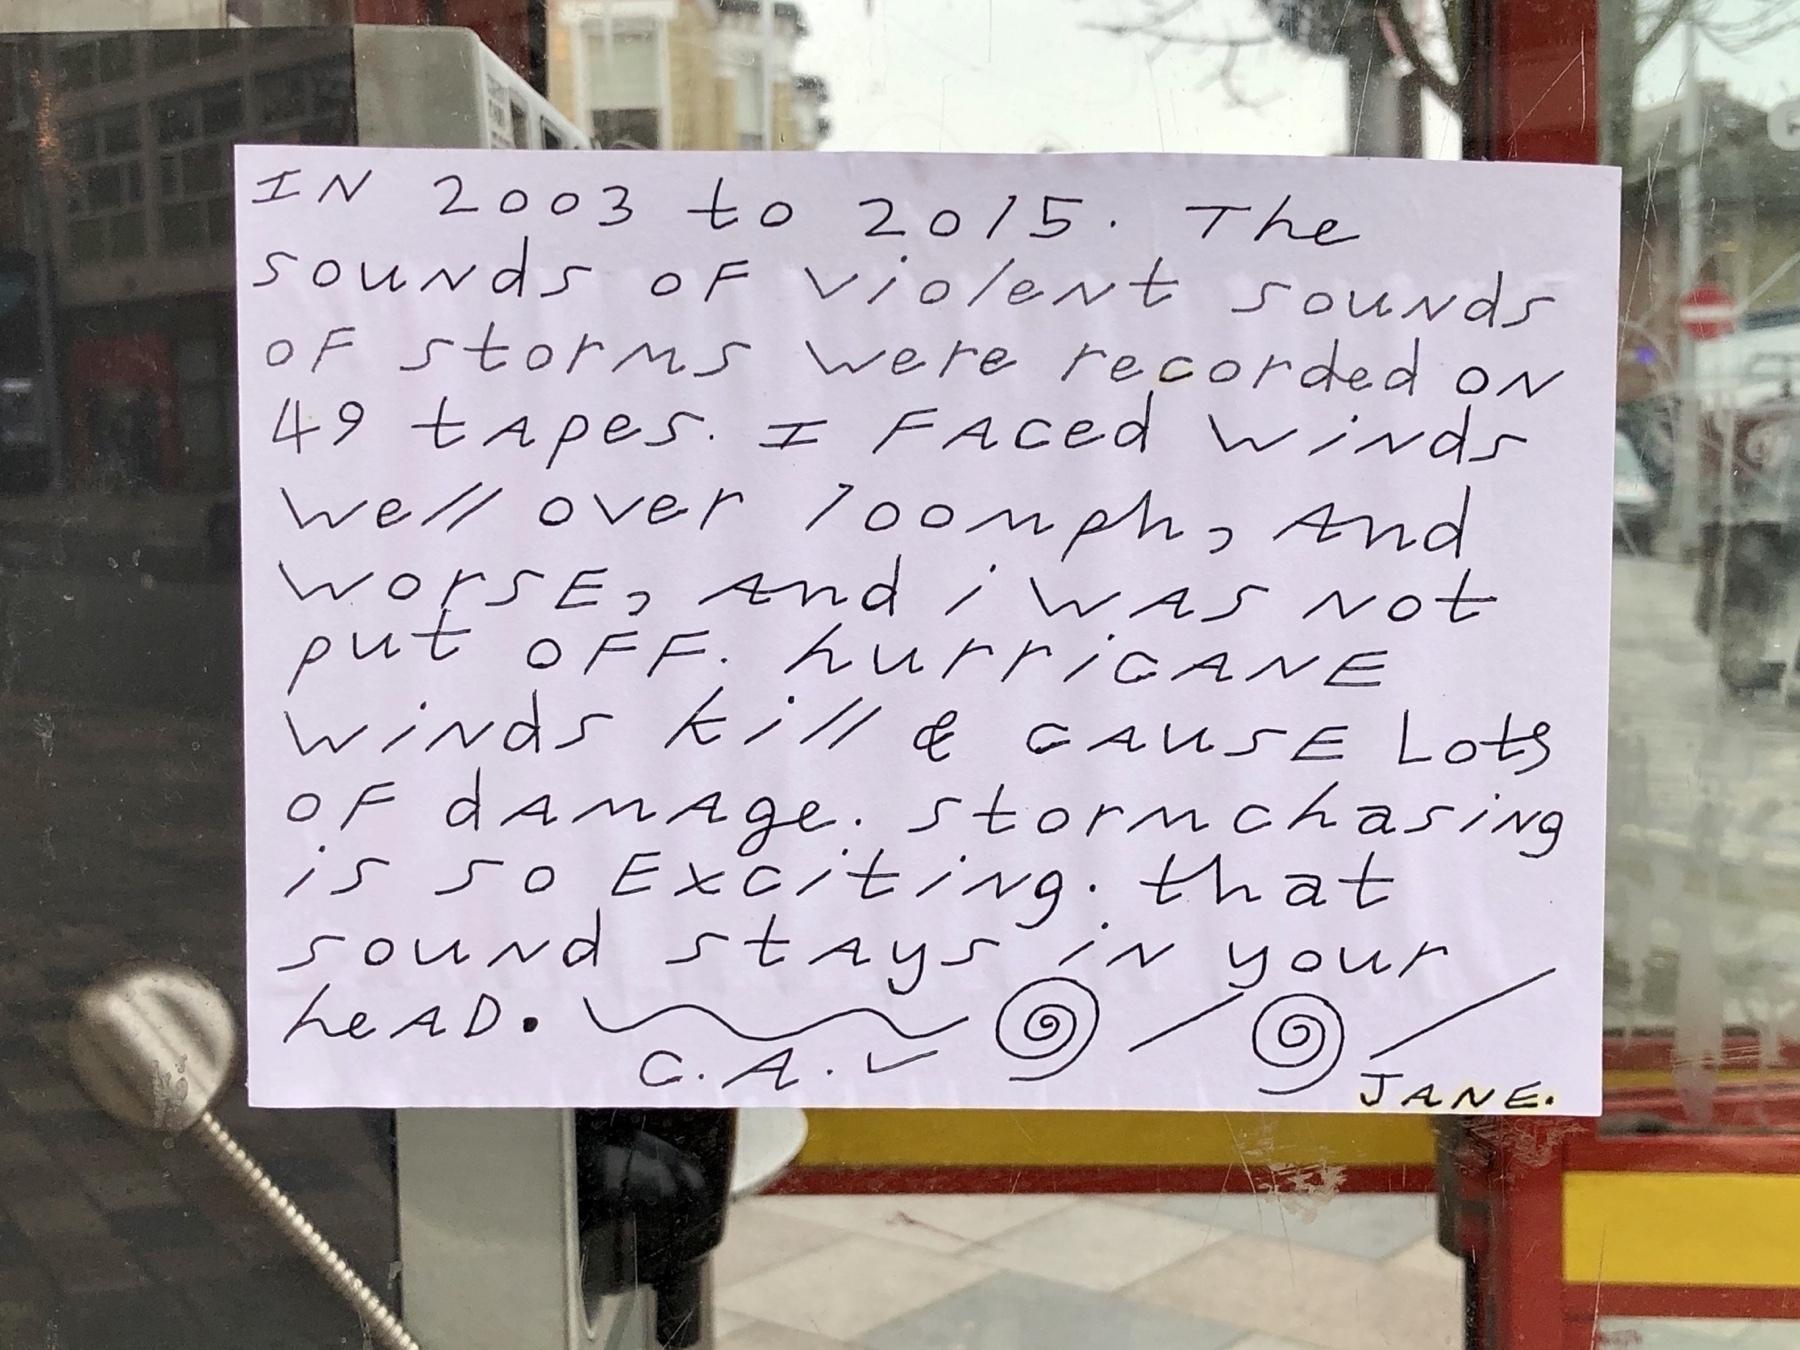 IN 2003 to 2015. The
sounds of violent sounds
of storms were recorded on
49 tApes. I FAced winds
well over 100mph, And
worsE, And i wAs not
put oFF. hurricANE
winds kill & cAusE Lots
oF dAmAge. stormchasing
is so Exciting. that
sound stAys in your
heAD.
C.A.
JANE.